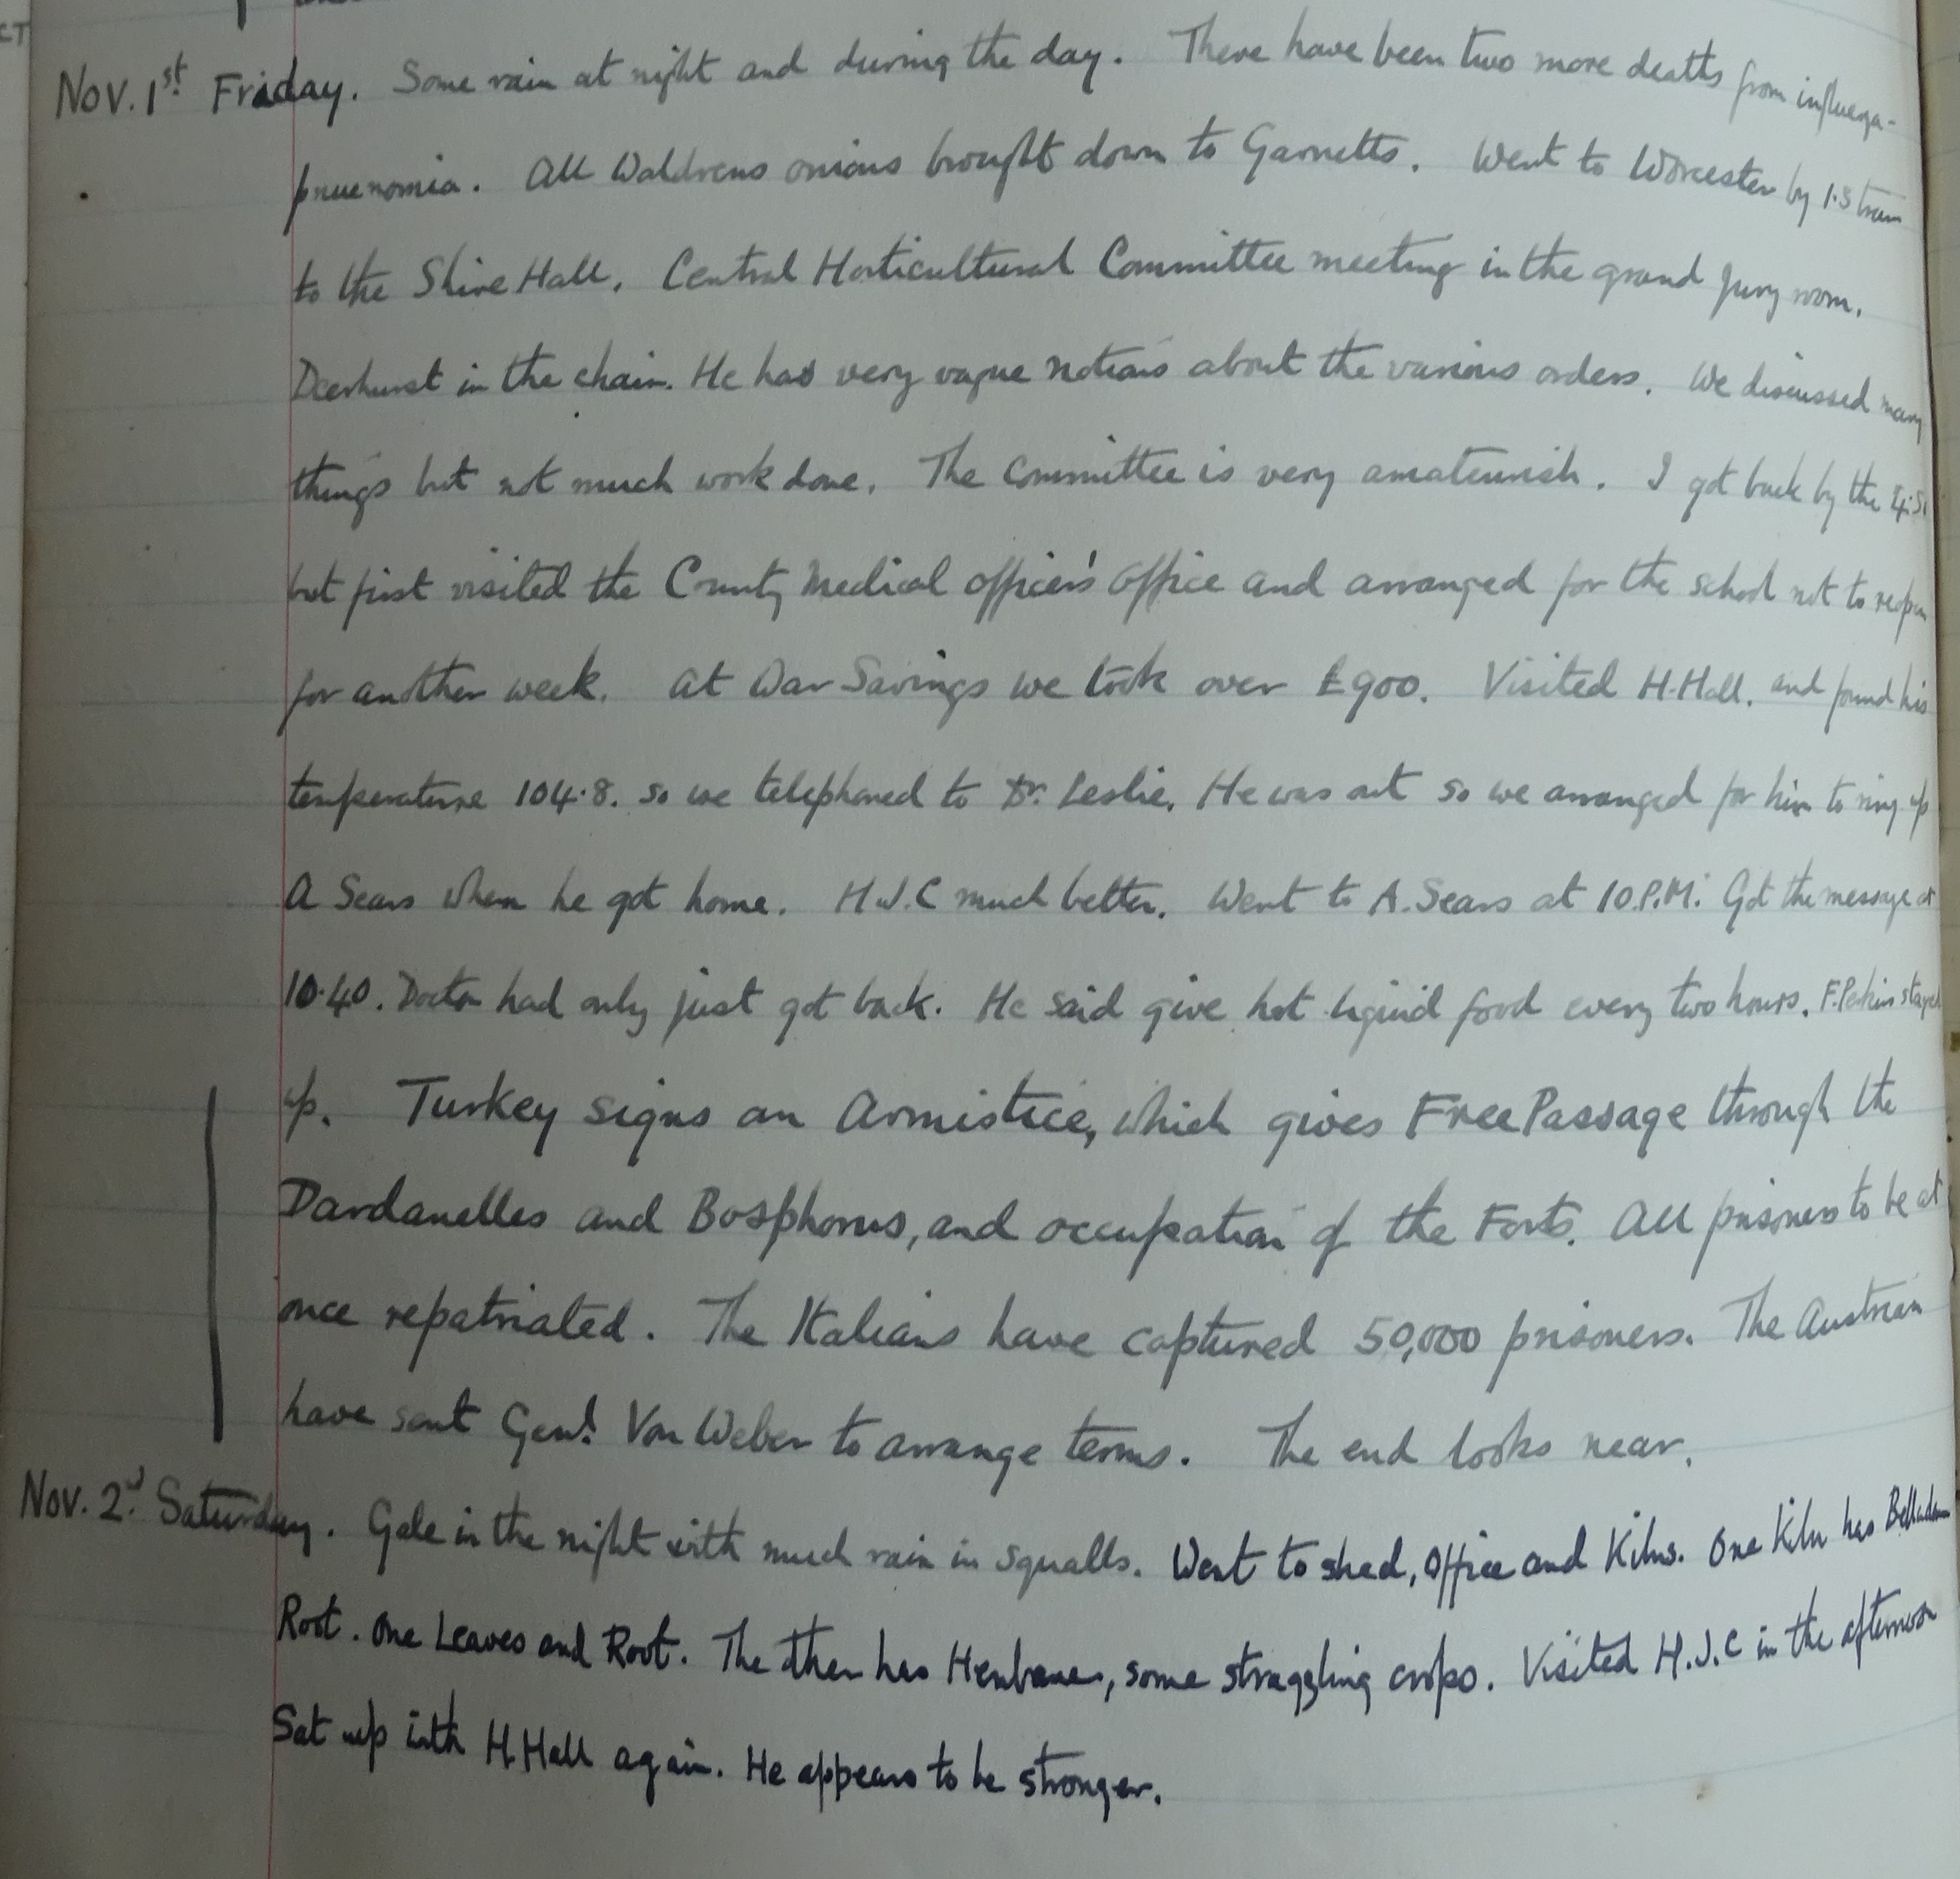 CT
Nov. 1st Friday. Some rain at night and during the day. There have been two more deaths from influenza-
pnuenomia. All Waldrens onions brought down to Garnetts. Went to Worcester by 1.5 tram
to the Shire Hall. Central Horticultural Committee meeting in the grand jury room.
Deerhurst in the chair. He has very vague notions about the various orders. We discussed many
things but not much work done. The Committee is very amateurish. I got back by the
but first visited the County Medical officer's office and arranged for the school not to reopen
for another week. At War Savings we took over £900. Visited H. Hall. and found his
temperature 104.8. so we telephoned to Dr. Leslie. He was out so we arranged for him to ring up
A Sears when he got home. H.J.C much better. Went to A. Sears at 10.P.M. Got the message at
10.40. Doctor had only just got back. He said give hot liquid food every two hours. F. Perkins stayed
up. Turkey signs an Armistice, which gives Free Passage through the
Dardanelles and Bosphorus, and occupation of the Forts. All prisoners to be at
once repatriated. The Italians have captured 50,000 prisoners. The Austrian
have sent Genl. Von Weber to arrange terms. The end looks near.
Nov. 2d Saturday. Gale in the night with much rain in squalls. Went to shed, office and Kilns. One Kiln has Belladonna
Root. One Leaves and Root. The other has Henbane, some straggling crops. Visited H.J.C in the afternoon
Sat up with H. Hall again. He appears to be stronger.